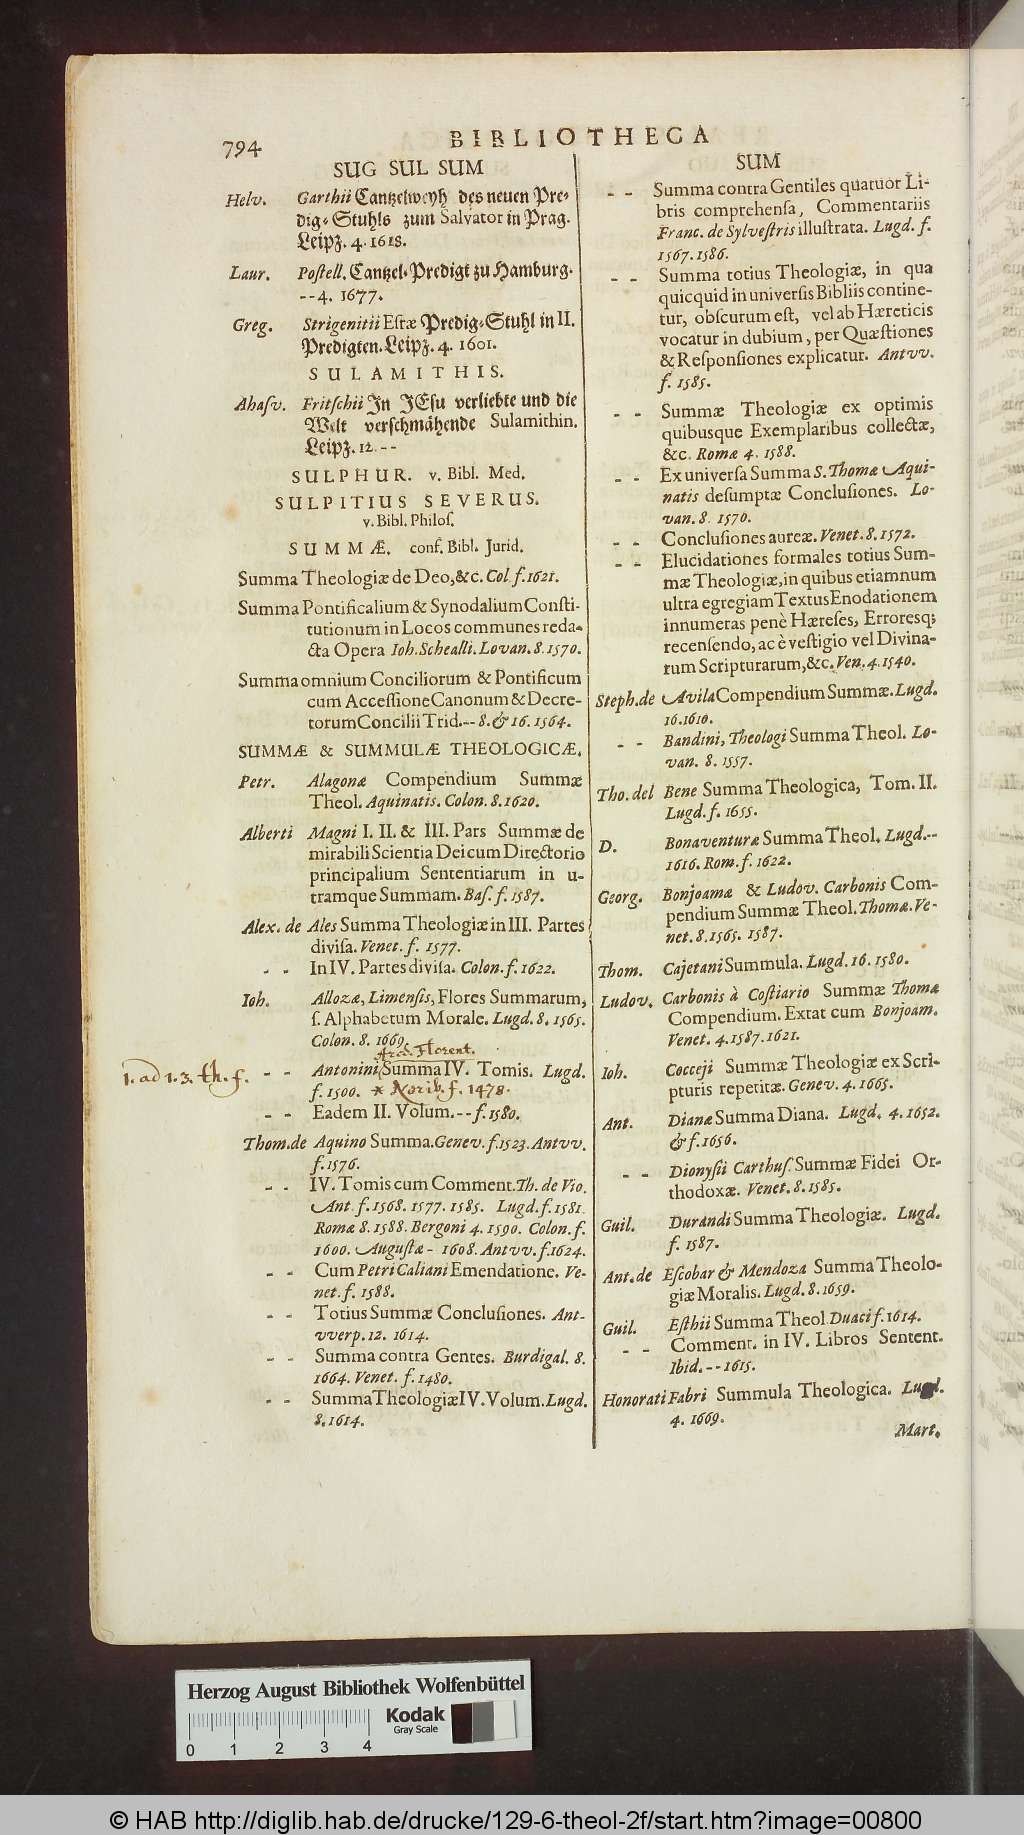 794
BIBLIOTHECA
SUG SUL SUM
Helv. Garthii Cantzelweyh des neuen Pre-
dig-Stuhls zum Salvator in Prag.
Leipz. 4. 1618.
Laur. Postell. Cantzel-Predigt zu Hamburg.
--4. 1677.
Greg. Strigenitii Estræ Predig-Stuhl in II.
Predigten. Leipz. 4. 1601.
SULAMITHIS.
Ahasv. Fritschii In JEsu verliebte und die
Welt verschmähende Sulamithin.
Leipz. 12. --
SULPHUR. v. Bibl. Med.
SULPITIUS SEVERUS.
v. Bibl. Philos.
SUMMÆ. conf. Bibl. Jurid.
Summa Theologiæ de Deo, &c. Col f. 1621.
Summa Pontificalium & Synodalium Consti-
tutionum in Locos communes reda-
cta Opera Ioh. Scheasli. Lovan. 8. 1570.
Summa omnium Conciliorum & Pontificum
cum Accessione Canonum & Decre-
torum Concilii Trid. -- 8. & 16. 1564.
SUMMÆ & SUMMULÆ THEOLOGICÆ.
Petr. Alagonæ Compendium Summæ
Theol. Aquinatis. Colon. 8. 1620.
Alberti Magni I. II. & III. Pars Summæ de
mirabili Scientia Dei cum Directorio
principalium Sententiarum in u-
tramque Summam. Bas. f. 1587.
Alex. de Ales Summa Theologiæ in III. Partes
divisa. Venet. f. 1577.
- - In IV. Partes divisa. Colon. f. 1622.
Ioh. Allozæ, Limensis, Flores Summarum,
s. Alphabetum Morale. Lugd. 8. 1565.
Colon. 8. 1669.
Arch. Florent.
1. ad 1. 3. th. f. - - Antonini, Summa IV. Tomis. Lugd.
f. 1500. * Norib. f. 1478.
- - Eadem II. Volum. -- f. 1580.
Thom. de Aquino Summa. Genev. f. 1523. Antvv.
f. 1576.
- - IV. Tomis cum Comment. Th. de Vio.
Ant. f. 1568. 1577. 1585. Lugd. f. 1581.
Romæ 8. 1588. Bergoni 4. 1590. Colon. f.
1600. Augustæ - 1608. Antvv. f. 1624.
- - Cum Petri Caliani Emendatione. Ve-
net. f. 1588.
- - Totius Summæ Conclusiones. Ant-
vverp. 12. 1614.
- - Summa contra Gentes. Burdigal. 8.
1664. Venet. f. 1480.
- - Summa Theologiæ IV. Volum. Lugd.
8. 1614.
SUM
- - Summa contra Gentiles quatuor Li-
bris comprehensa, Commentariis
Franc. de Sylvestris illustrata. Lugd. f.
1567. 1586.
- - Summa totius Theologiæ, in qua
quicquid in universis Bibliis contine-
tur, obscurum est, vel ab Hæreticis
vocatur in dubium, per Quæstiones
& Responsiones explicatur. Antvv.
f. 1585.
- - Summæ Theologiæ ex optimis
quibusque Exemplaribus collectæ,
&c. Romæ 4. 1588.
- - Ex universa Summa S. Thomæ Aqui-
natis desumptæ Conclusiones. Lo-
van. 8. 1570.
- - Conclusiones aureæ. Venet. 8. 1572.
- - Elucidationes formales totius Sum-
mæ Theologiæ, in quibus etiamnum
ultra egregiam Textus Enodationem
innumeras penè Hæreses, Erroresq;
recensendo, ac è vestigio vel Divina-
rum Scripturarum, &c. Ven. 4. 1540.
Steph. de Avila Compendium Summæ. Lugd.
16. 1610.
- - Bandini, Theologi Summa Theol. Lo-
van. 8. 1557.
Tho. del Bene Summa Theologica, Tom. II.
Lugd. f. 1655.
D. Bonaventuræ Summa Theol. Lugd. --
1616. Rom. f. 1622.
Georg. Bonjoamæ & Ludov. Carbonis Com-
pendium Summæ Theol. Thomæ. Ve-
net. 8. 1565. 1587.
Thom. Cajetani Summula. Lugd. 16. 1580.
Ludov. Carbonis à Costiario Summæ Thomæ
Compendium. Extat cum Bonjoam.
Venet. 4. 1587. 1621.
Ioh. Cocceji Summæ Theologiæ ex Scri-
pturis repetitæ. Genev. 4. 1665.
Ant. Dianæ Summa Diana. Lugd. 4. 1652.
& f. 1656.
- - Dionysii Carthus. Summæ Fidei Or-
thodoxæ. Venet. 8. 1585.
Guil. Durandi Summa Theologiæ. Lugd.
f. 1587.
Ant. de Escobar & Mendoza Summa Theolo-
giæ Moralis. Lugd. 8. 1659.
Guil. Esthii Summa Theol. Duaci f. 1614.
- - Comment. in IV. Libros Sentent.
Ibid. -- 1615.
Honorati Fabri Summula Theologica. Lugd.
4. 1669.
Mart.
Herzog August Bibliothek Wolfenbüttel
Kodak
Gray Scale
0 1 2 3 4
© HAB http://diglib.hab.de/drucke/129-6-theol-2f/start.htm?image=00800